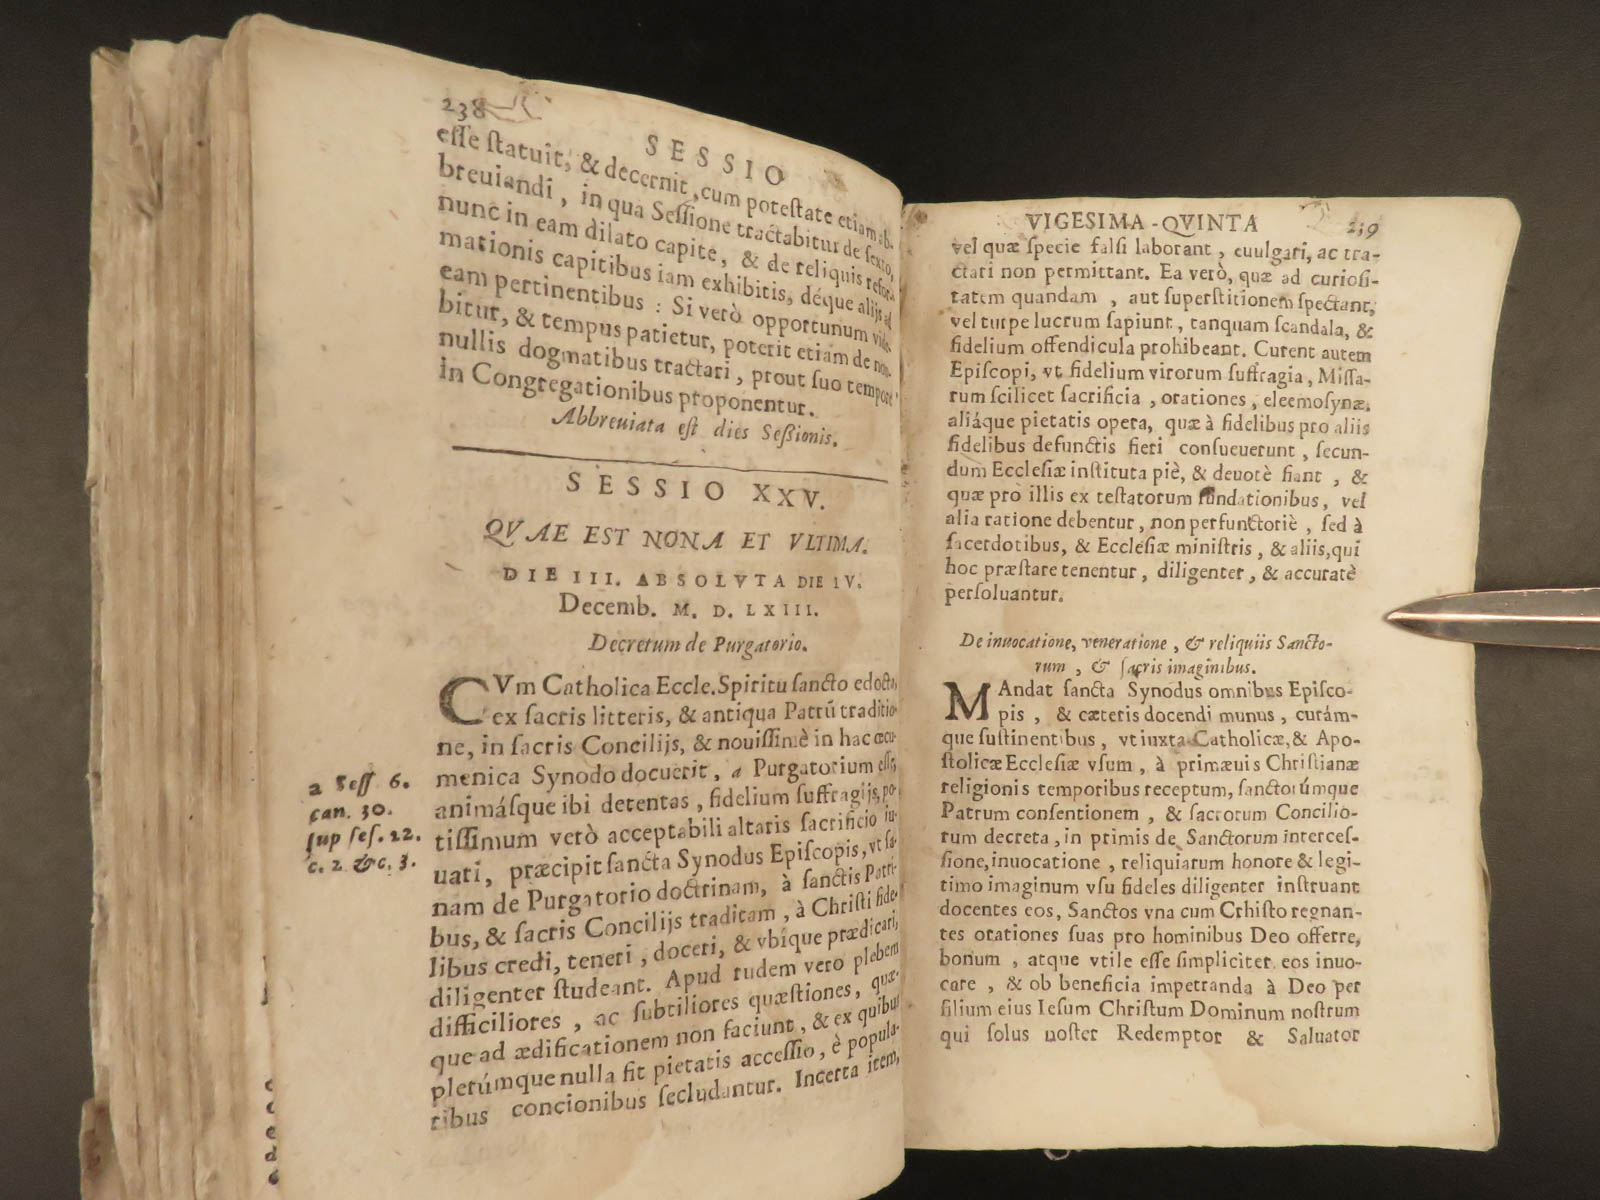 238
SESSIO
esse statuit, & decernit, cum potestate etiam ab-
breuiandi, in qua Sessione tractabitur de sexto,
nunc in eam dilato capite, & de reliquis refor-
mationis capitibus iam exhibitis, déque alijs ad
eam pertinentibus : Si verò opportunum vide-
bitur, & tempus patietur, poterit etiam de non-
nullis dogmatibus tractari, prout suo tempore
in Congregationibus proponentur.
Abbreuiata est dies Sessionis.
SESSIO XXV.
QVAE EST NONA ET VLTIMA.
DIE III. ABSOLVTA DIE IV.
Decemb. M. D. LXIII.
Decretum de Purgatorio.
CVm Catholica Eccle. Spiritu sancto edocta,
ex sacris litteris, & antiqua Patrū traditio-
ne, in sacris Concilijs, & nouissimè in hac œcu-
menica Synodo docuerit, a Purgatorium esse,
animásque ibi detentas, fidelium suffragijs, po-
tissimum verò acceptabili altaris sacrificio iu-
uari, præcipit sancta Synodus Episcopis, vt sa-
nam de Purgatorio doctrinam, à sanctis Patri-
bus, & sacris Concilijs traditam, à Christi fide-
libus credi, teneri, doceri, & vbíque prædicari,
diligenter studeant. Apud rudem vero plebem
difficiliores, ac subtiliores quæstiones, quæ-
que ad ædificationem non faciunt, & ex quibus
plerúmque nulla fit pietatis accessio, è popula-
ribus concionibus secludantur. Incerta item,
a Sess 6.
can. 30.
sup ses. 22.
c. 2 & c. 3.
VIGESIMA-QVINTA
239
vel quæ specie falsi laborant, euulgari, ac tra-
ctari non permittant. Ea verò, quæ ad curiosi-
tatem quandam, aut superstitionem spectant,
vel turpe lucrum sapiunt, tanquam scandala, &
fidelium offendicula prohibeant. Curent autem
Episcopi, vt fidelium virorum suffragia, Missa-
rum scilicet sacrificia, orationes, eleemosynæ,
aliáque pietatis opera, quæ à fidelibus pro aliis
fidelibus defunctis fieri consueuerunt, secun-
dum Ecclesiæ instituta piè, & deuotè fiant, &
quæ pro illis ex testatorum fundationibus, vel
alia ratione debentur, non perfunctoriè, sed à
sacerdotibus, & Ecclesiæ ministris, & aliis, qui
hoc præstare tenentur, diligenter, & accuratè
persoluantur.
De inuocatione, veneratione, & reliquiis Sancto-
rum, & sacris imaginibus.
MAndat sancta Synodus omnibus Episco-
pis, & cæteris docendi munus, curám-
que sustinentibus, vt iuxta Catholicæ, & Apo-
stolicæ Ecclesiæ vsum, à primæuis Christianæ
religionis temporibus receptum, sanctorúmque
Patrum consentionem, & sacrorum Concilio-
rum decreta, in primis de Sanctorum interces-
sione, inuocatione, reliquiarum honore & legi-
timo imaginum vsu fideles diligenter instruant
docentes eos, Sanctos vna cum Crhisto regnan-
tes orationes suas pro hominibus Deo offerre,
bonum, atque vtile esse simpliciter eos inuo-
care, & ob beneficia impetranda à Deo per
filium eius Iesum Christum Dominum nostrum
qui solus noster Redemptor & Saluator